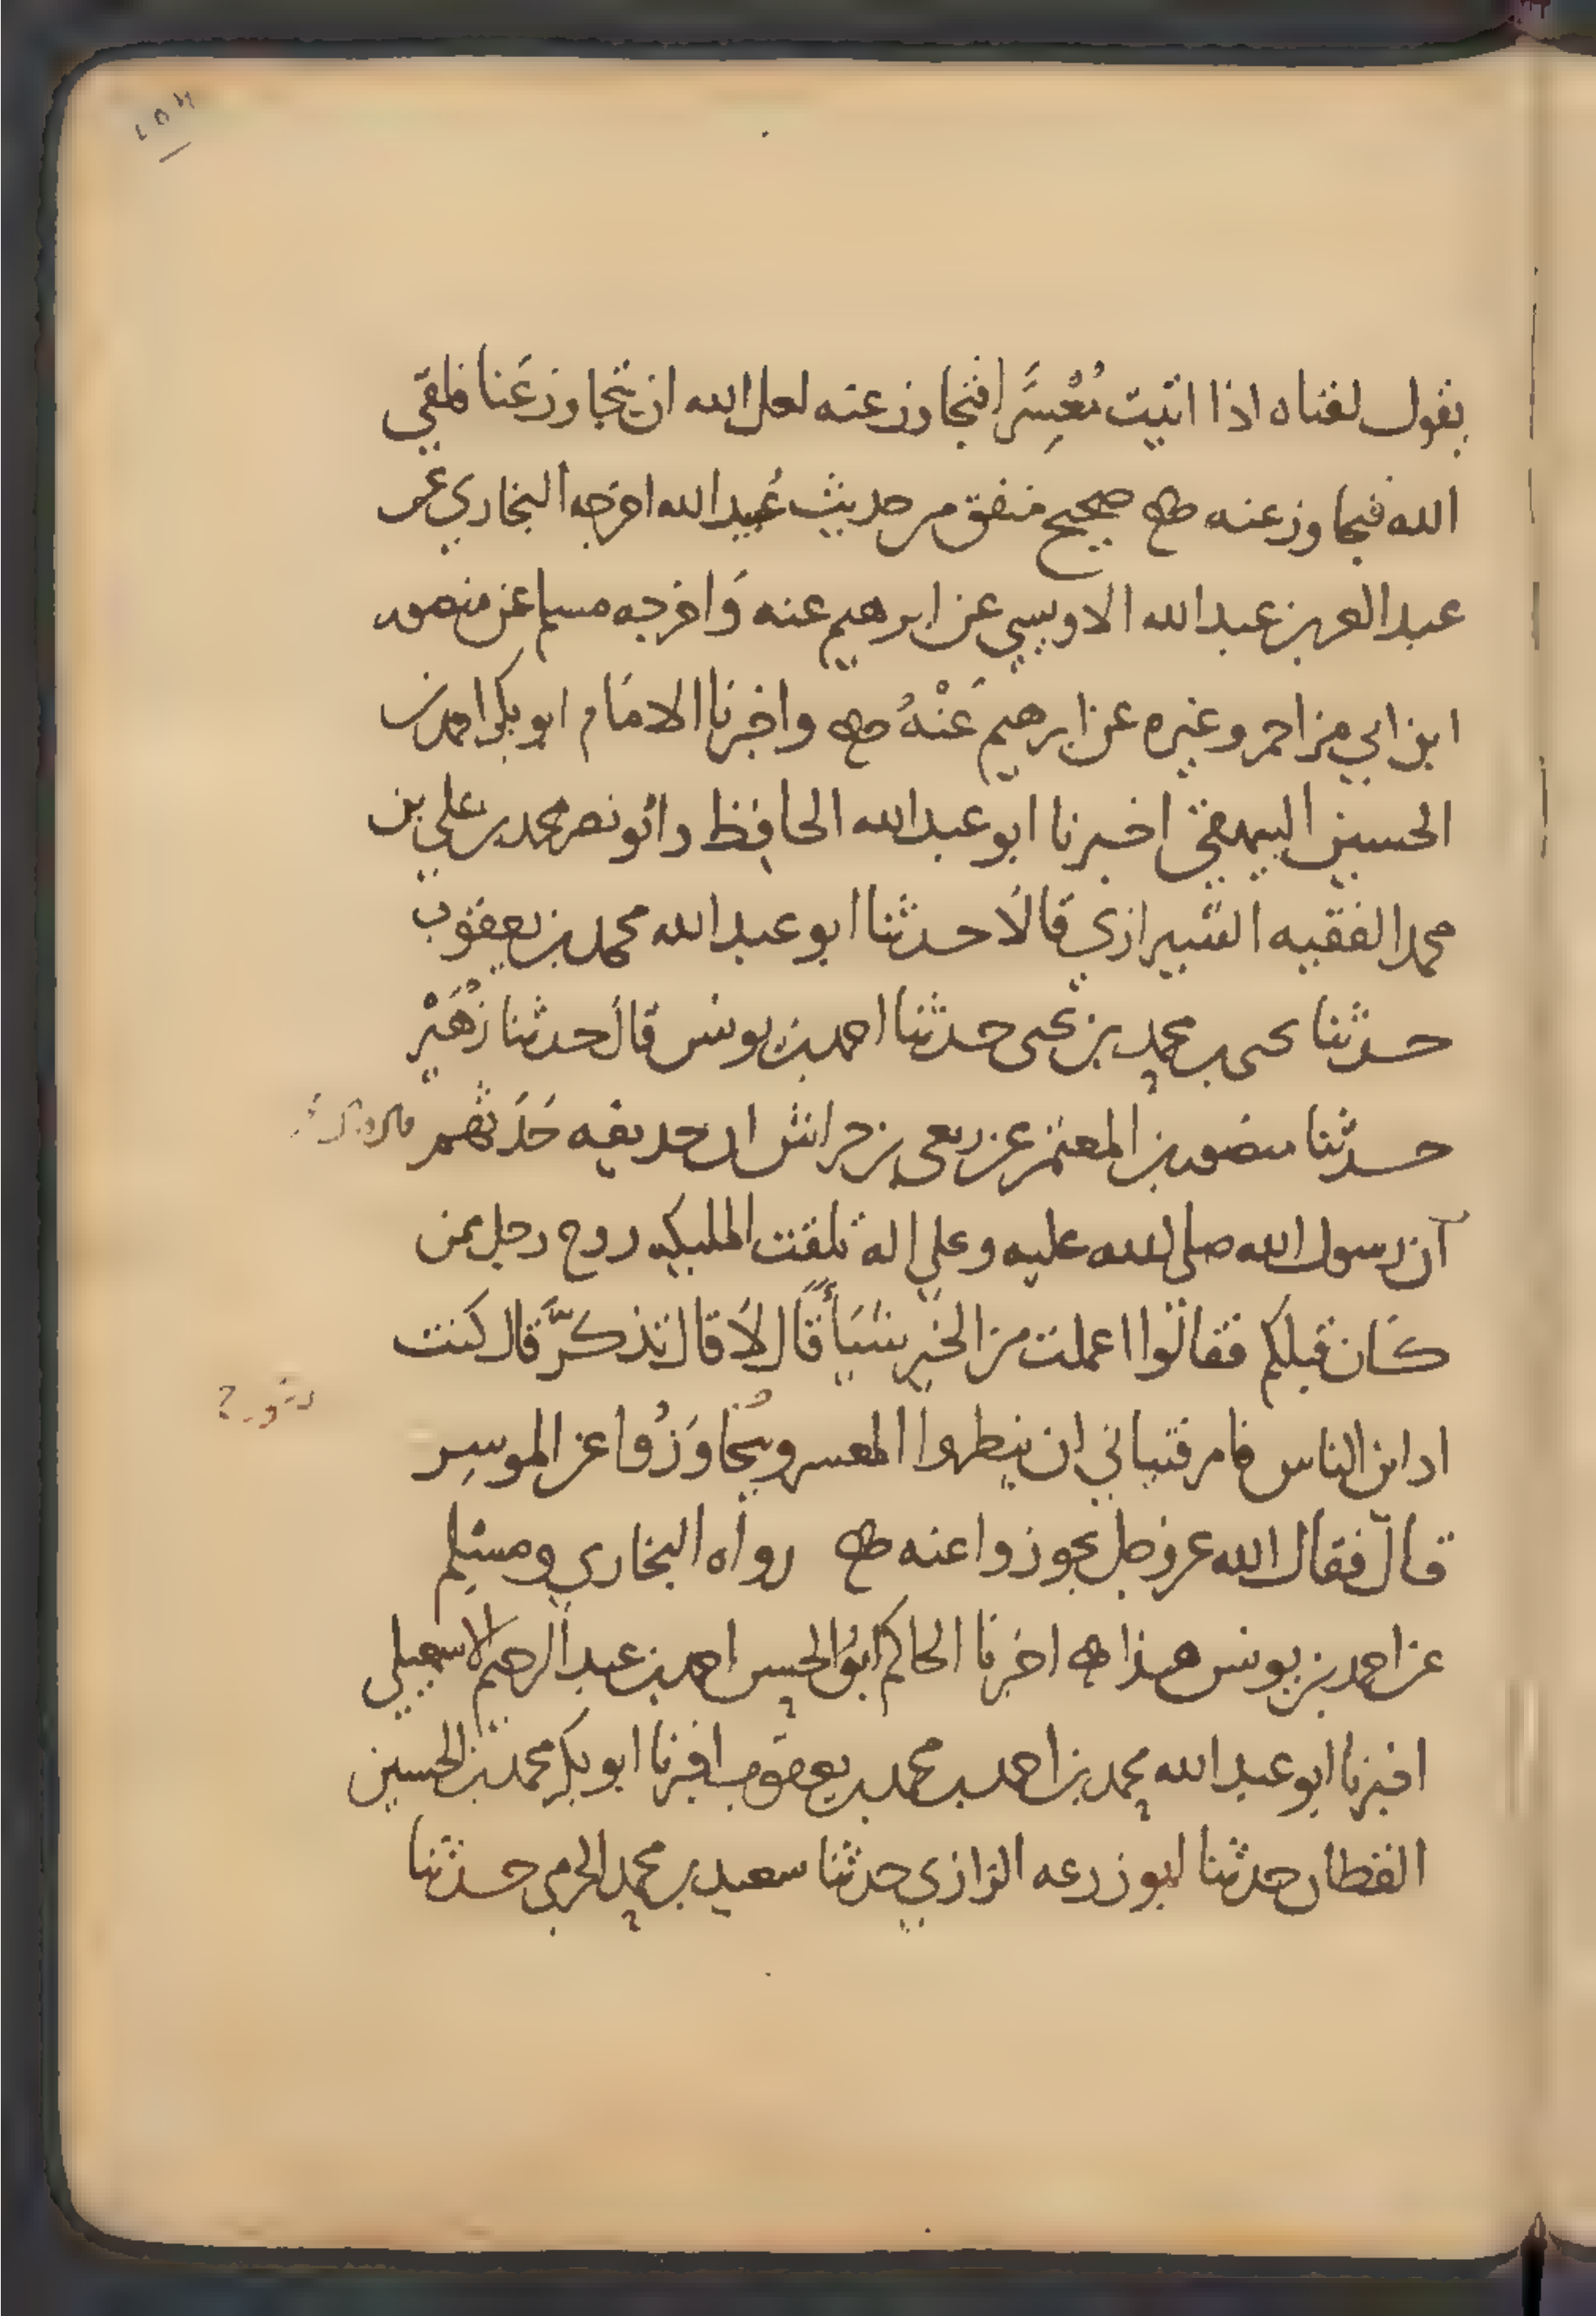 يقول لفتاه اذا اتيت مُعْسِرًا فتجاوز عنه لعل الله ان يتجاوز عَنا فلقي
الله فتجاوز عنه صحيح متفق من حديث عُبيد الله اخرجه البخاري عن
عبد العزيز عبد الله الاويسي عن ابرهيم عنه وَاخرجه مسلم عن منصور
ابن ابي مزاحم وغيره عن ابرهيم عَنْهُ واخبرنا الامَام ابو بكر احمد بن
الحسين البيهقي اخبرنا ابو عبد الله الحافِظ وابُو نصر محمد بن علي بن
محمد الفقيه الشيرازي قالَا حدثنا ابو عبد الله محمد بن يعقوب
حدثنا يحيى بن محمد بن يحيى حدثنا احمد بن يونس قال حدثنا زُهَيْر
حدثنا منصور بن المعتمر عن ربعي بن حراش ان حديفه حَدَثهم
أن رسول الله صلى الله عليه وعلى اله تلقت المليكه روح رجل ممن
كَان قبلكم فقالوا اعملت من الخير شَيَأً قال لَا قال تذكرَّ قال كنت
اداين الناس فامر فتياني ان ينظروا المعسر ويُتجاوَزُوا عن الموسِر
قال فقال الله عز وجل تجوزوا عنه رواه البخاري ومسلم
عن احمد بن يونس هذا اخبرنا الحاكم ابوُ الحسن احمد بن عبد الرحيم الاسمعيلي
اخبرنا ابو عبد الله محمد بن احمد بن محمد بن يعقوب اخبرنا ابو بكر محمد بن الحسين
القطان حدثنا ابو زرعه الرازي حدثنا سعيد بن محمد الجرمي حدثنا